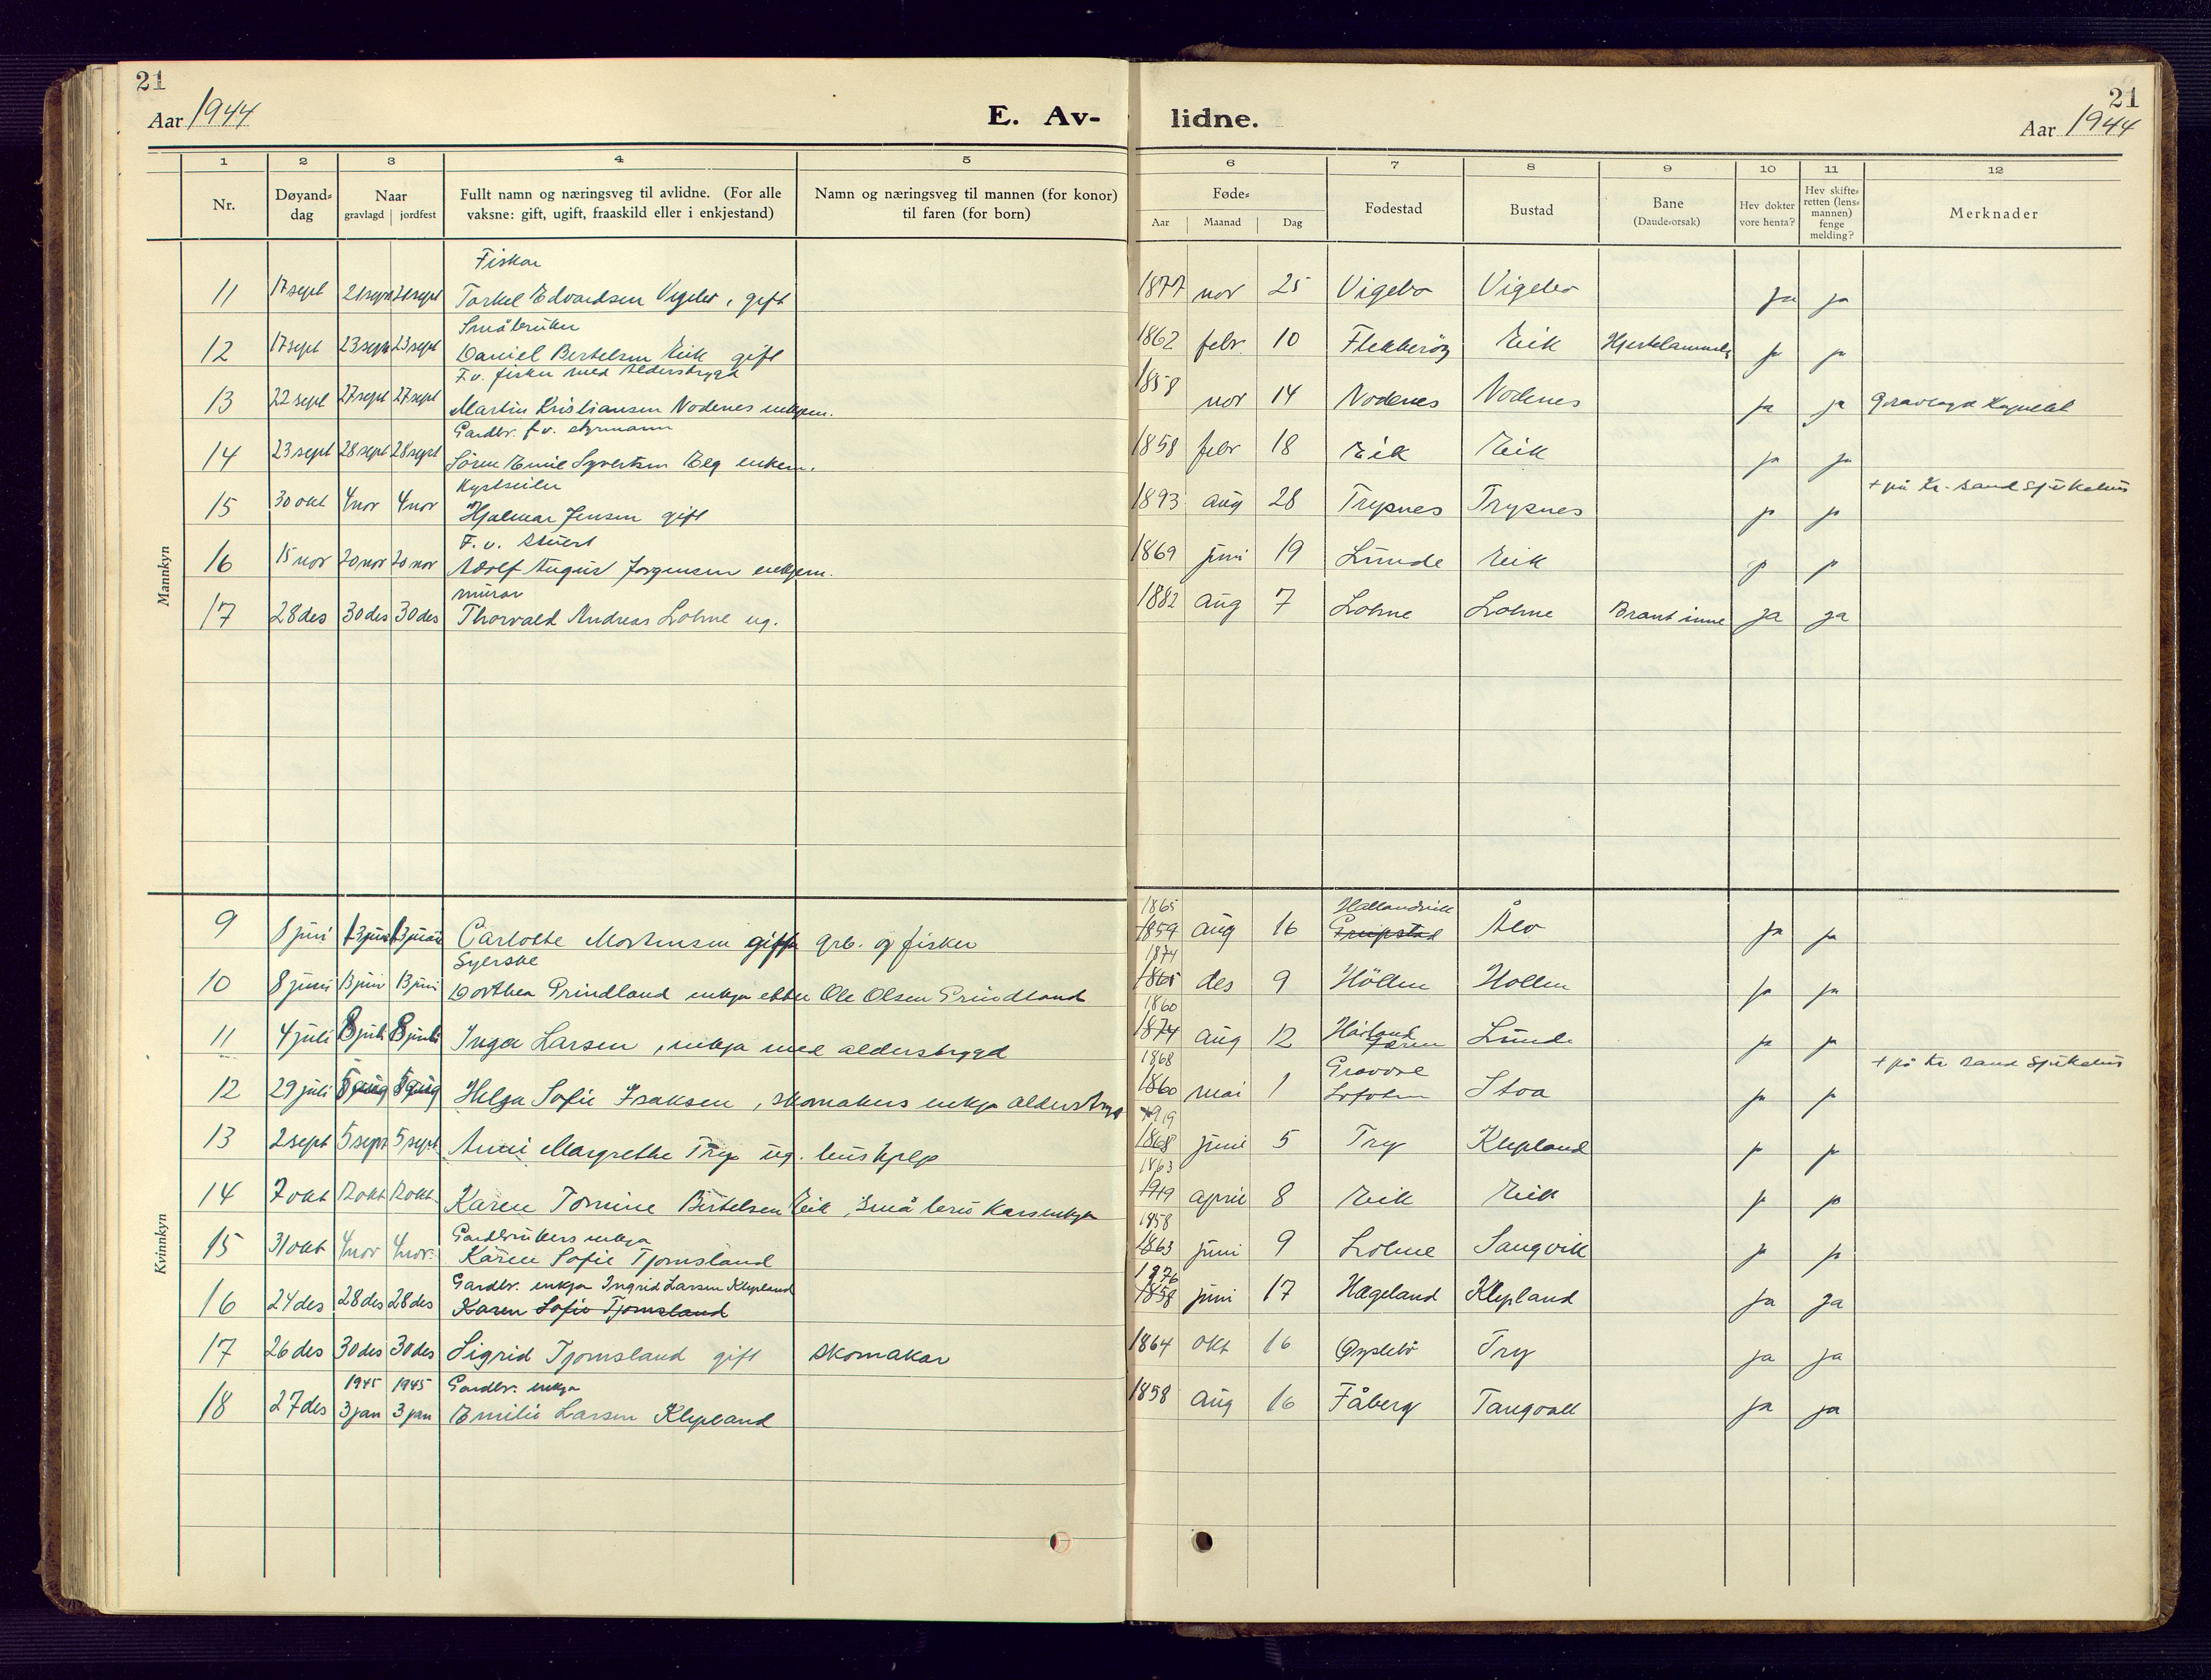 21
Aar 1944
E. Av-
lidne.
21
Aar 1944
1 2 3 4 5 6 7 8 9 10 11 12
Nr.
Døyand-
dag
Naar
gravlagd | jordfest
Fullt namn og næringsveg til avlidne. (For alle
vaksne: gift, ugift, fraaskild eller i enkjestand)
Namn og næringsveg til mannen (for konor)
til faren (for born)
Føde-
Aar Maanad Dag
Fødestad
Bustad
Bane
(Daude-orsak)
Hev dokter
vore henta?
Hev skifte-
retten (lens-
mannen)
fenge
melding?
Merknader
Mannkyn
Fiskar
11 17 sept 21 sept 21 sept Torkel Edvardsen Vigebo, gift 1877 nov 25 Vigebo Vigebo ja ja
Småbruker
12 17 sept 23 sept 23 sept Daniel Bertelsen Eik gift 1862 febr. 10 Flekkerøy Eik ja ja
F.v. fisker med aldersbrygd
13 22 sept 27 sept 27 sept Martin Kristiansen Nodenes enkjem. 1858 nov 14 Nodenes Nodenes ja ja
Gardbr. f.v. styrmann
14 23 sept 28 sept 28 sept Sören Emil Syvertsen Eeg enkem. 1858 febr 18 Eik Eik ja ja
Kystseiler + på Kr.sand Sjukehus
15 30 okt 4 nov 4 nov Hjalmar Jensen gift 1893 aug 28 Trysnes Trysnes ja ja
F.v. stuert
16 15 nov 20 nov 20 nov Adolf August Jørgensen enkjem. 1869 juni 19 Lunde Eik ja ja
murar
17 28 des 30 des 30 des Thorvald Andreas Lohne ug. 1882 aug 7 Lohne Lohne Brant inne ja ja
Kvinnkyn
1865 Hallandvik
9 8 juni 13 juni 13 juni Carlotte Mortensen gift grb. og fisker 1859 aug 16 Ålo ja ja
Syerske 1874
10 8 juni 13 juni 13 juni Dorthea Prindland enkja etter Ole Olsen Prindland 1865 des 9 Höllen Hollen ja ja
1860
11 4 juli 8 juli 8 juli Inga Larsen, enkja med aldersbrygd 1874 aug 12 Lunde ja ja
1868 + på Kr sand Sjukehus
12 29 juli 5 aug 5 aug Helga Sofie Isaksen, skomakers enkja 1860 mai 1 Lofoten Stoa ja ja
1919
13 2 sept 5 sept 5 sept Anni Margrethe Try ug. hushjelp 1868 juni 5 Try Klepland ja ja
1863
14 7 okt 12 okt 12 okt Karen Tomine Bertelsen Eik, småbrukars enkja 1919 april 8 Eik Eik ja ja
Gardbrukers enkja 1858
15 31 okt 4 nov 4 nov. Karen Sofie Tjomsland 1863 juni 9 Lohne Sangvik ja ja
Gardbr. enkja Ingrid Larsen Klepland 1876
16 24 des 28 des 28 des Karen Sofie Tjomsland 1858 juni 17 Hægeland Klepland ja ja
17 26 des 30 des 30 des Sigrid Tjomsland gift skomakar 1864 okt 16 Øyslebø Try ja ja
1945 1945 Gardbr. enkja
18 27 des 3 jan 3 jan Emilie Larsen Klepland 1858 aug 16 Fåberg Tangvall ja ja